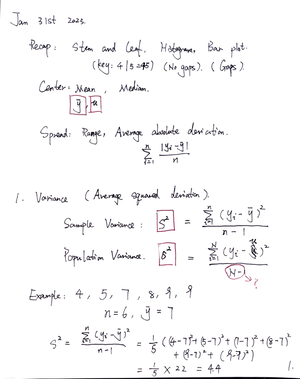 Jan 31st 2023.
Recap: Stem and leaf, Histogram, Bar plot.
(key: 4|5=45) (No gaps). (Gaps).
Center: Mean, Median.
ȳ, μ
Spread: Range, Average absolute deviation.
∑ⁿᵢ₌₁ |yᵢ-ȳ| / n
1. Variance (Average squared deviation).
Sample Variance: S² = ∑ⁿᵢ₌₁ (yᵢ-ȳ)² / n-1
Population Variance. σ² = ∑ᴺᵢ₌₁ (yᵢ-μ)² / N-1 → ?
Example: 4, 5, 7, 8, 9, 9
n=6, ȳ=7
S² = ∑ⁿᵢ₌₁ (yᵢ-ȳ)² / n-1 = 1/5 ((4-7)²+(5-7)²+(7-7)²+(8-7)²
+(9-7)²+(9-7)²)
= 1/5 × 22 = 44
1.